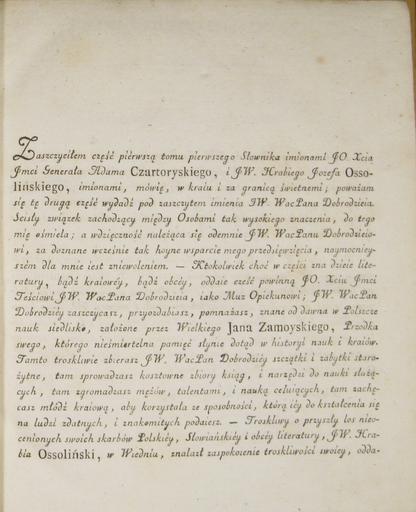 Zaszczyciłem część piérwszą tomu pierwszego Słownika imionami JO. Xcia
Jmci Generała Adama Czartoryskiego, i JW. Hrabiego Jozefa Osso-
lińskiego, imionami, mówię, w kraiu i za granicą świetnemi; poważam
się tę drugą część wydadź pod zaszczytem imienia JW. WacPana Dobrodzieia.
Scisły związek zachodzący między Osobami tak wysokiego znaczenia, do tego
mię ośmiela; a wdzięczność należąca się odemnie JW. WacPanu Dobrodzieio-
wi, za doznane wcześnie tak hoyne wsparcie mego przedsięwzięcia, naymocniey-
szém dla mnie iest zniewoleniem. — Ktokolwiek choć w części zna dzieie lite-
ratury, bądź kraiowéy, bądź obcéy, oddaie cześć powinną JO. Xciu Jmci
Teściowi JW. WacPana Dobrodzieia, iako Muz Opiekunowi; JW. WacPan
Dobrodziéy zaszczycasz, przyozdabiasz, pomnażasz, znane od dawna w Polszcze
nauk siedlisko, założone przez Wielkiego Jana Zamoyskiego, Przodka
swego, którego nieśmiertelna pamięć słynie dotąd w historyi nauk i kraiów.
Tamto troskliwie zbierasz JW. WacPan Dobrodziéy szczątki i zabytki staro-
żytne, tam sprowadzasz kosztowne zbiory ksiąg, i narzędzi do nauki służą-
cych, tam zgromadzasz mężów, talentami, i nauką celuiących, tam zachę-
casz młódź kraiową, aby korzystała ze sposobności, którą iéy do kształcenia się
na ludzi zdatnych, i znakomitych podaiesz. — Troskliwy o przyszły los nieo-
cenionych swoich skarbów Polskiéy, Słowiańskiéy i obcéy literatury, JW. Hra-
bia Ossoliński, w Wiedniu, znalazł zaspokoienie troskliwości swoiey, odda-